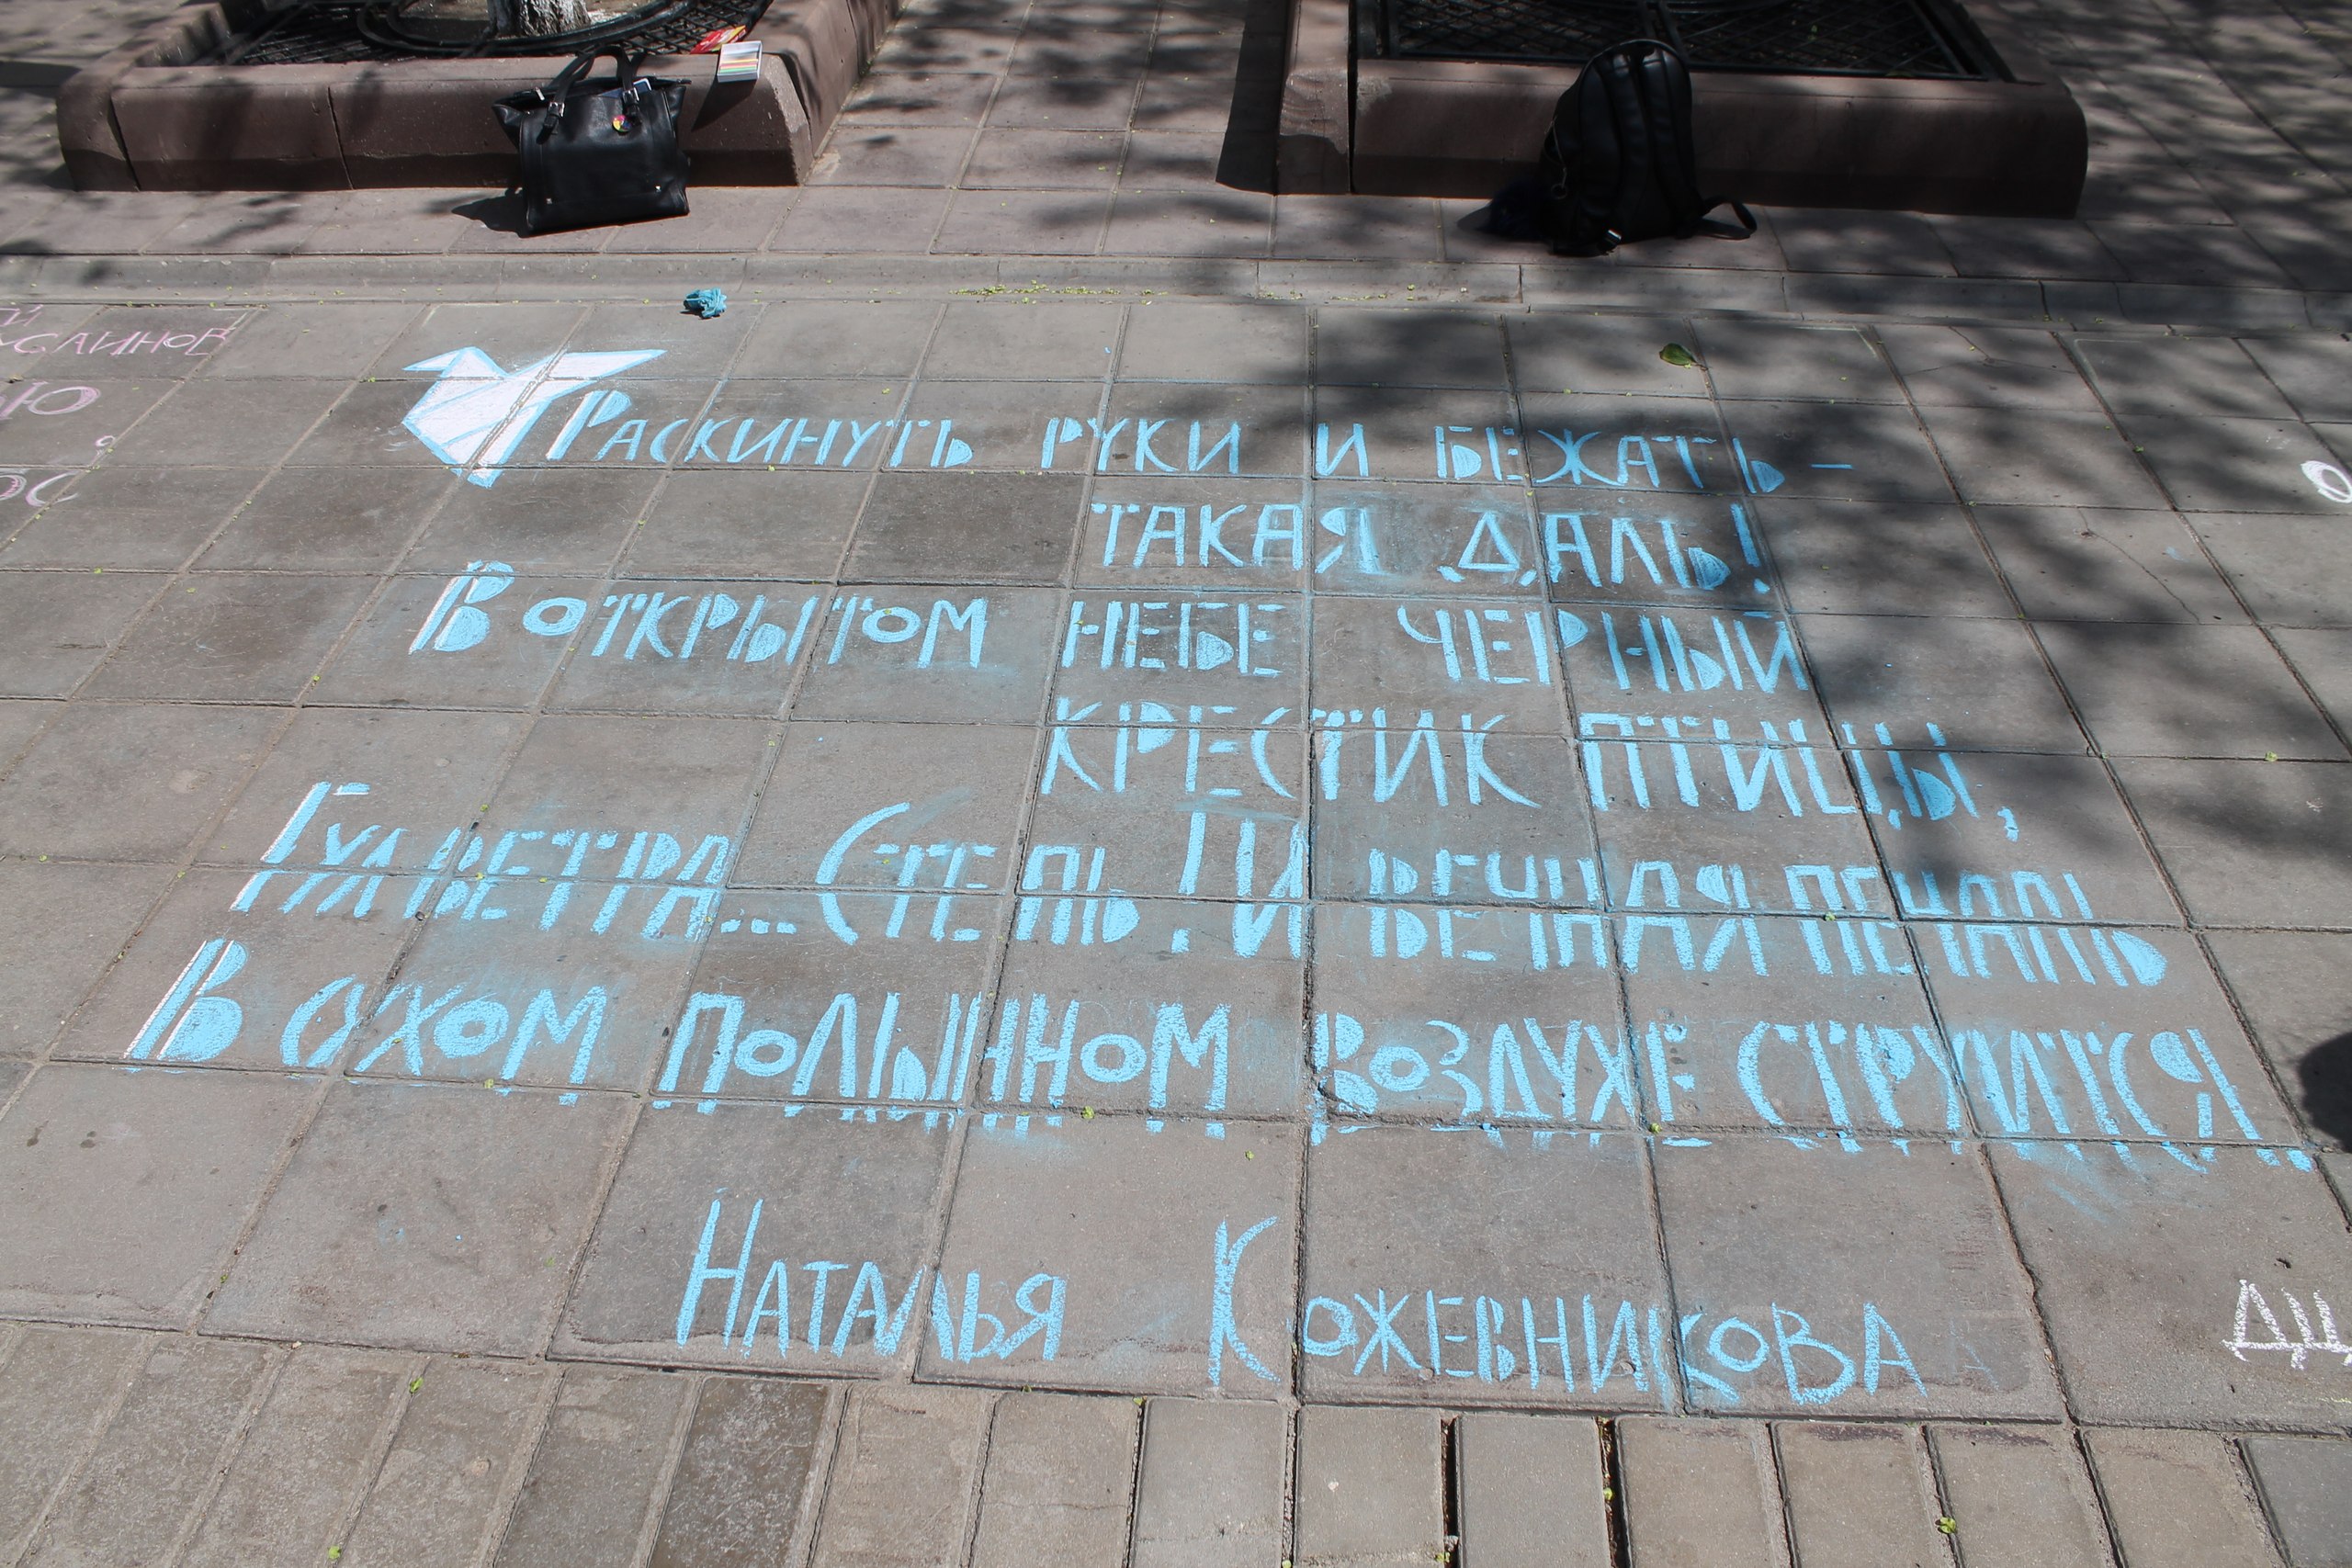 Раскинуть руки и бежать –
такая даль!
В открытом небе черный
крестик птицы,
Гул ветра... Степь! И вечная печаль
В сухом полынном воздухе струится...
Наталья Кожевникова